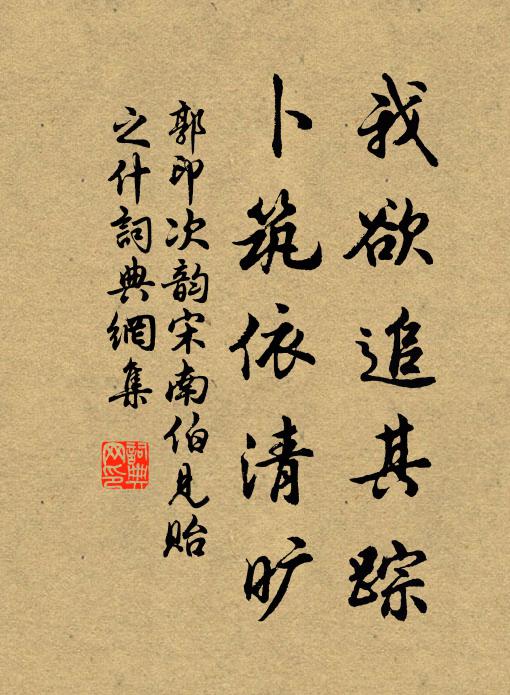 我欲追其踪
卜筑依清旷
郭印次韵宋南伯见贻
之什詞典網集
詞典
网印